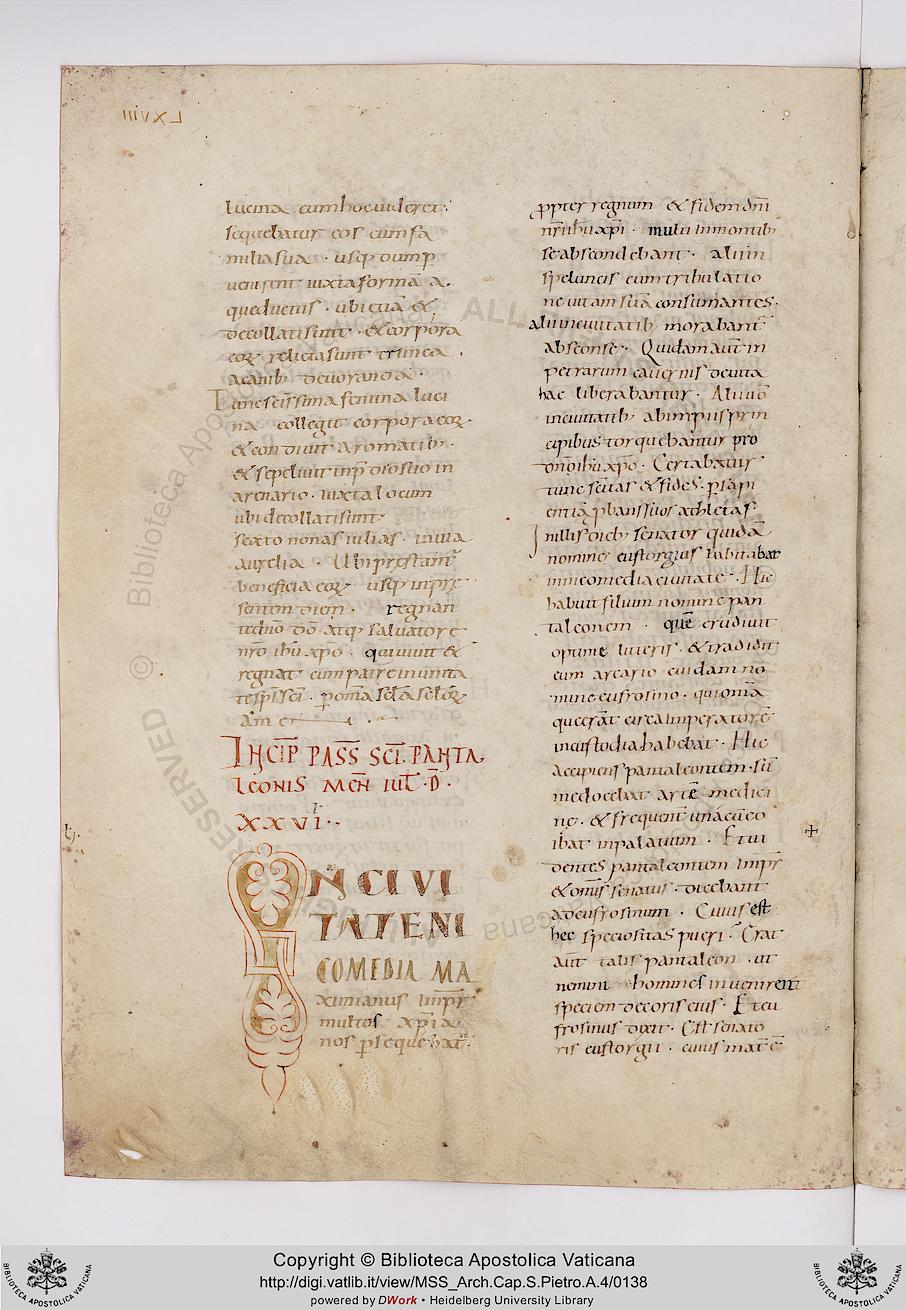 lucina cum hoc uideret.
sequebatur eos cum fa
milia sua. usq; dum p
uenirent iuxta formā a.
queductus. ubi etiā &
decollati sunt. & corpora
eoꝝ relicta sunt trunca.
acanib; deuoranda.
Tunc scīssima femina luci
na collegit corpora eoꝝ.
& condiuit aromatib;.
& sepeliuit inp̄dio suo in
arenario. iuxta locum
ubi decollati sunt
sexto nonas iulias. in uia
aurelia. Ubi prestant̄
beneficia eoꝝ usq; inprę
sentem diem. regnan
te dn̄o dō atq; saluatore
nr̄o ih̄u xp̄o. qui uiuit &
regnat cum patre inunita
te sp̄s sc̄i. p om̄a sc̄la sc̄loꝝ
am̄en
INCIP̄ PASS̄ SC̄I. PANTA
LEONIS MEN̄ IUL̄. D.
XXVI.
IN CIVI
TATE NI
COMEDIA MA
ximianus imp̄r
multos xp̄ia
nos p sequebat̄.
ꝓpter regnum & fidem dn̄i
nr̄i ih̄u xp̄i. multi inmontib;
se abscondebant. alii in
speluncis cum tribulatio
ne uitam suā consum̄antes.
alii inciuitatib; morabant̄
absconse. Quidam aut̄ in
petrarum cauernis deuita
hac liberabantur. Alii uō
inciuitatib; ab impiis prin
cipibus torquebantur pro
dn̄o ih̄u xp̄o. Certabatur
tunc scītas & fides. p sapi
entiā ꝓbans suos athletas.
In illis dieb; senator quidā
nomine eustorgius habitabat
innicomedia ciuitate. Hic
habuit filium nomine pan
taleonem. quē erudiuit
optime litteris. & tradidit
eum arcario cuidam no
mine eufrosino. qui omīa
que erāt circa imperatorē
incustodia habebat. Hic
accipiens pantaleontem. sū
me docebat artē medici
nę. & frequent̄ unacū eo
ibat in palatium. Et ui
dentes pantaleontem imp̄r
& om̄is senatus. dicebant
ad eufrosinum. Cuius est
hec speciositas pueri. Erat
aut̄ talis pantaleon. ut
nemini homines inuenirent
speciem decoris eius. Et eu
frosinus dixit. Est senato
ris eustorgii. cuius mater̄
Copyright © Biblioteca Apostolica Vaticana
http://digi.vatlib.it/view/MSS_Arch.Cap.S.Pietro.A.4/0138
powered by DWork • Heidelberg University Library